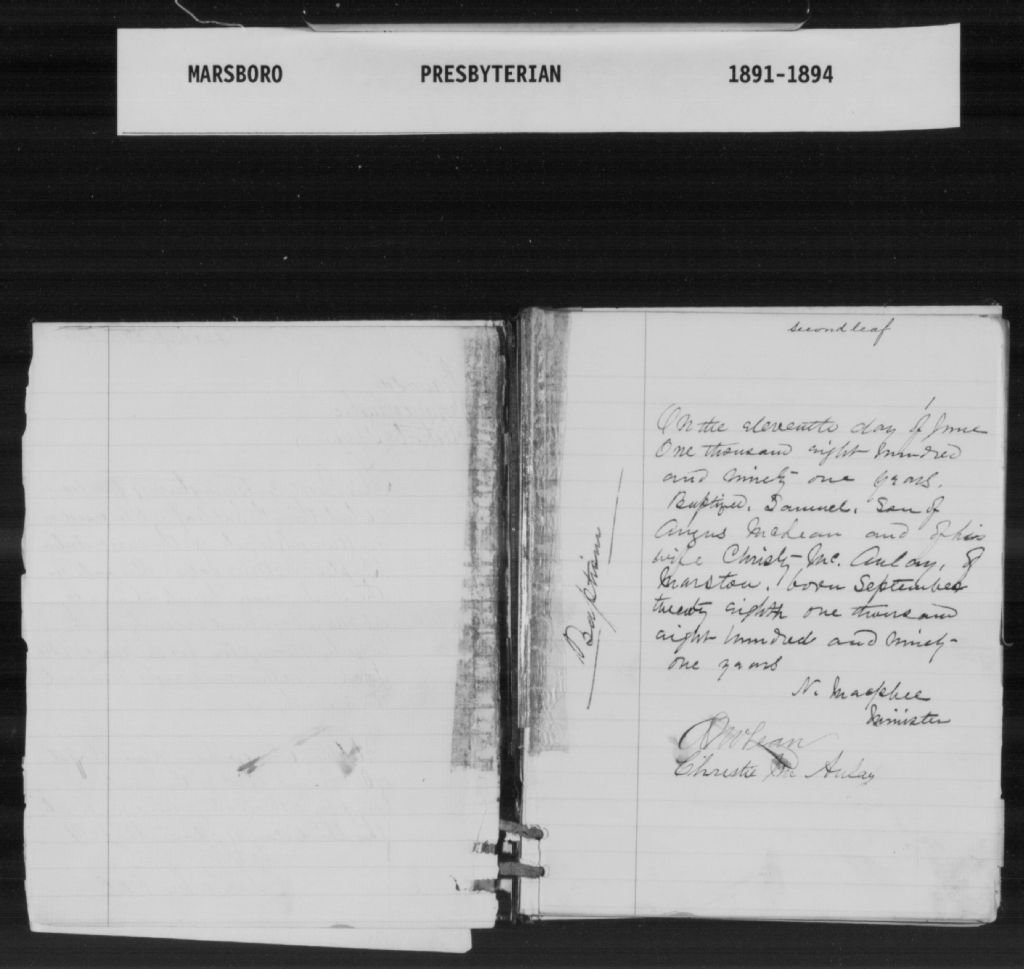 MARSBORO PRESBYTERIAN 1891-1894
second leaf
On the eleventh day of June
One thousand eight hundred
and ninety one years.
Baptized, Samuel, Son of
Angus McLean and of his
wife Christy Mc. Aulay, of
Marston. born September
twenty eighth one thousand
eight hundred and ninety-
one years
N. Macphee
Minister
A McLean
Christie Mc Aulay
Baptism